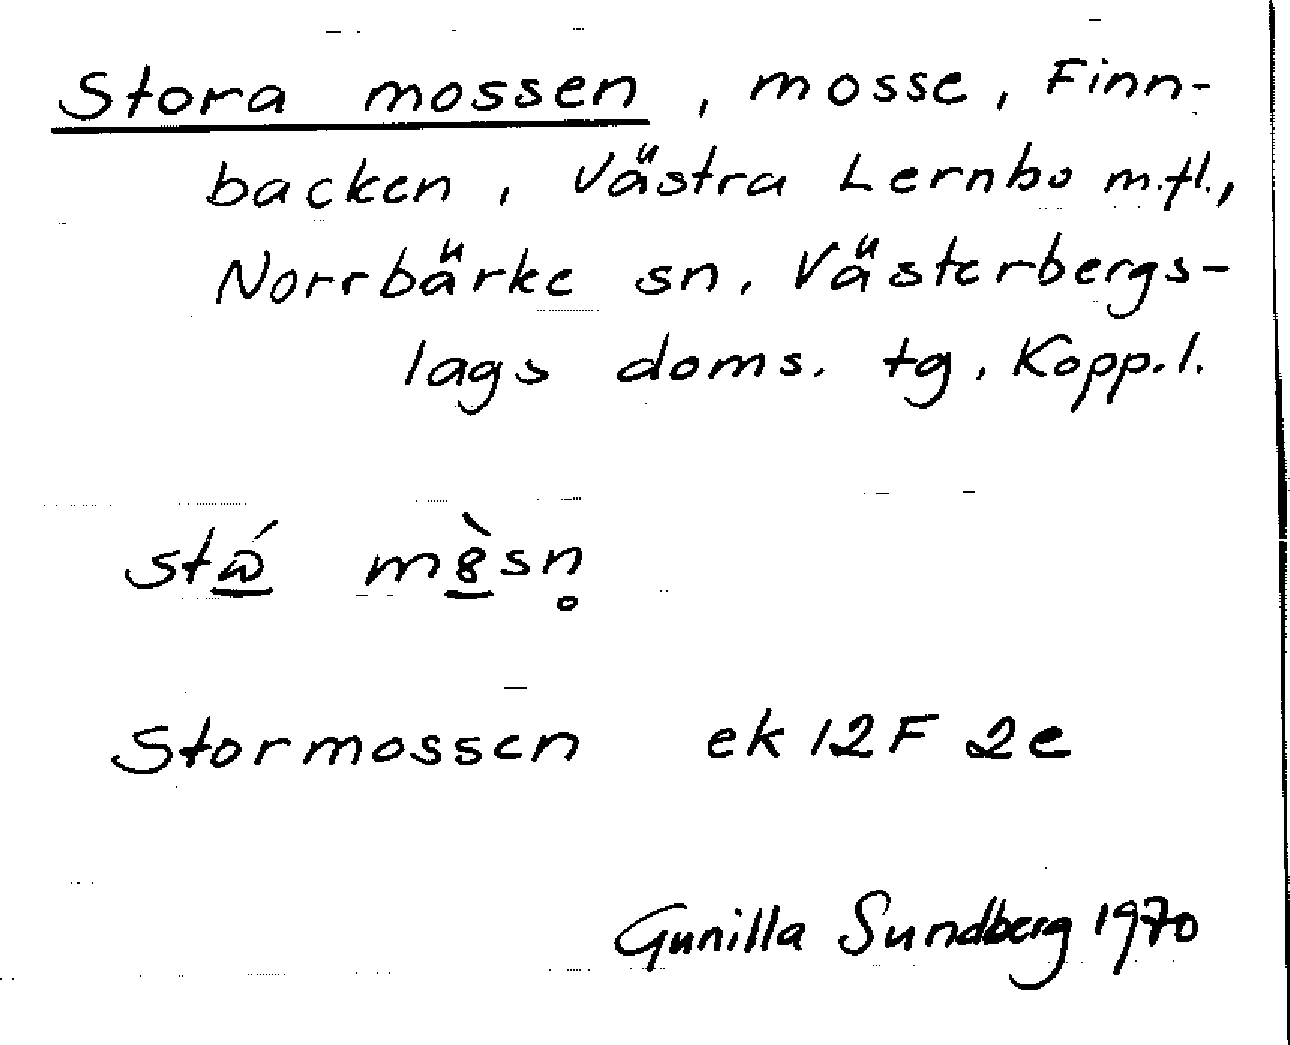 Stora mossen, mosse, Finn-
backen, Västra Lernbo m.fl.,
Norrbärke sn, Västerbergs-
lags doms. tg, Kopp.l.
Stormossen ek 12F 2e
Gunilla Sundberg 1970